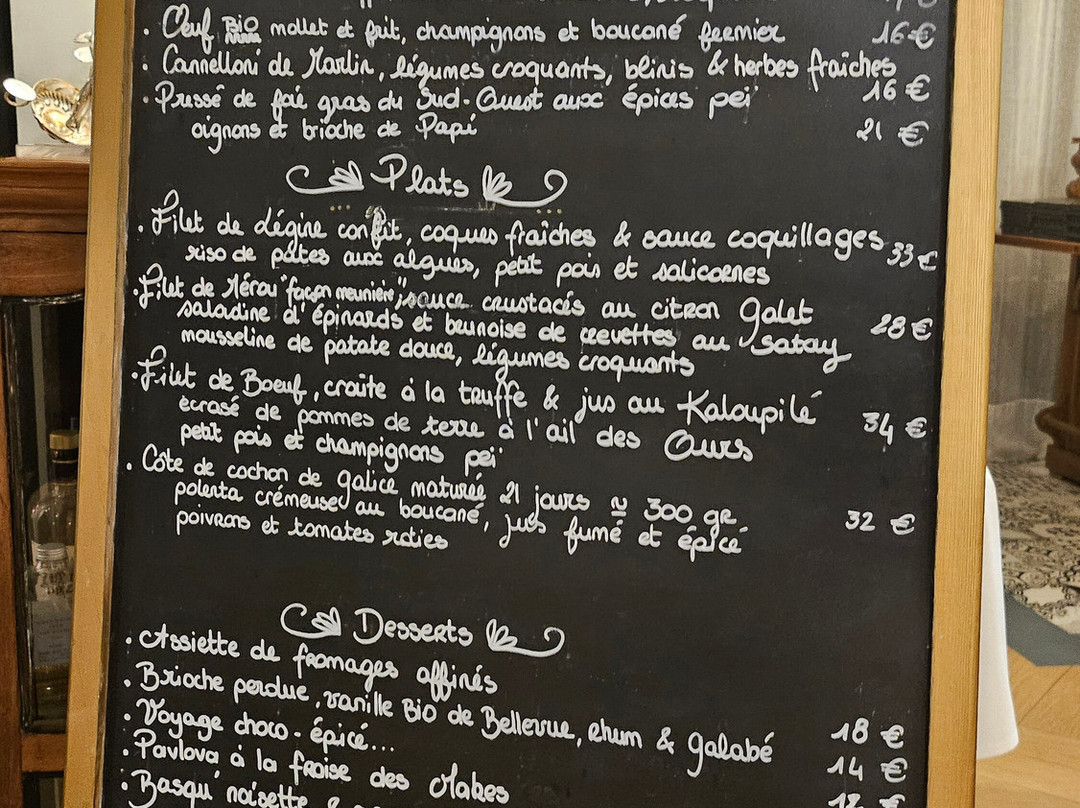 · Oeuf Bio mollet et frit, champignons et boucané fermier 16 €
· Cannelloni de Marlin, légumes croquants, blinis & herbes fraîches 16 €
· Pressé de foie gras du Sud-Ouest aux épices peï
oignons et brioche de Papi 21 €
Plats
· Filet de Légine confit, coques fraîches & sauce coquillages 33 €
riso de pâtes aux algues, petit pois et salicornes
· Filet de Mérou "façon meunière", sauce crustacés au citron Galet 28 €
saladine d'épinards et brunoise de crevettes au satay
mousseline de patate douce, légumes croquants
· Filet de Boeuf, croûte à la truffe & jus au Kaloupilé 34 €
écrasé de pommes de terre à l'ail des Ours
petit pois et champignons peï
· Côte de cochon de Galice maturée 21 jours ≈ 300 gr 32 €
polenta crémeuse au boucané, jus fumé et épicé
poivrons et tomates roties
Desserts
· Assiette de fromages affinés 18 €
· Brioche perdue, vanille Bio de Bellevue, rhum & galabé 14 €
· Voyage choco-épicé...
· Pavlova à la fraise des Makes
· Basqu' noisette